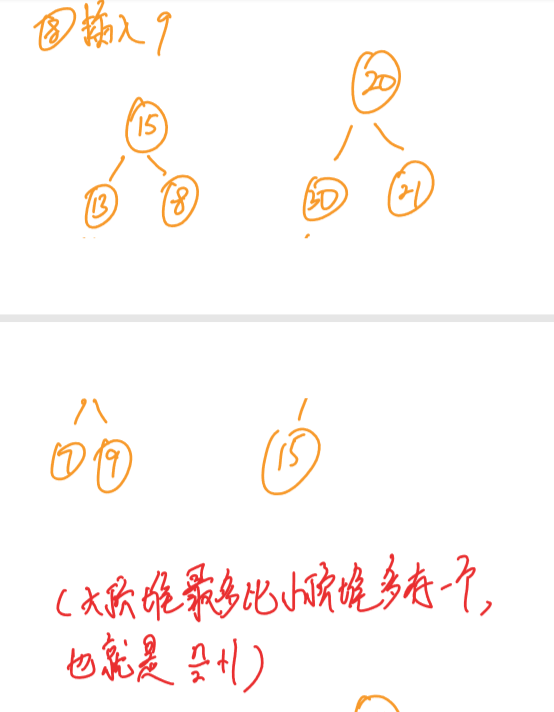 ④插入9
15 20
13 8 30 21
7 9 15
(大顶堆最多比小顶堆多存一个,
也就是 n/2+1)